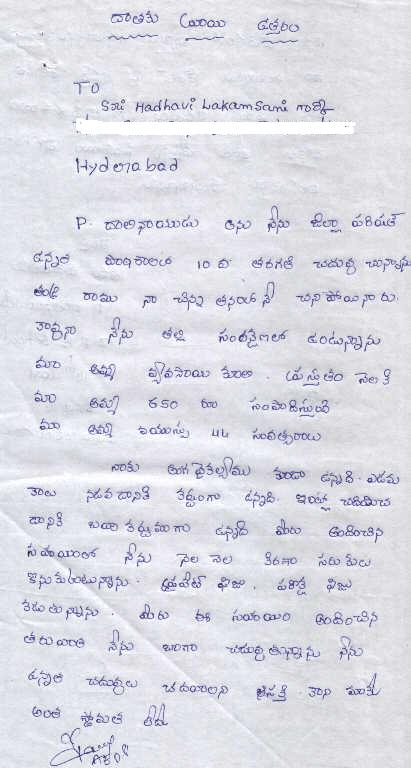 దాతకు యొక్క ఉత్తరం
TO
Sri Madhavi Lakamsani గార్కి
Hyderabad
P. దాలినాయుడు అను నేను జిల్లా పరిషత్
ఉన్నత పాఠశాలలో 10 వ తరగతి చదువు చున్నాను
తండ్రి రాము నా చిన్న తనంలోనే చనిపోయినారు.
కావున నేను తల్లి సంరక్షణలో ఉంటున్నాను
మా అమ్మ వ్యవసాయ కూలీ. ప్రస్తుతం నెలకి
మా అమ్మ 650 రూ సంపాదిస్తుంది
మా అమ్మ వయస్సు 44 సంవత్సరాలు
నాకు అంగవైకల్యము కూడా ఉన్నది. ఎడమ
కాలు నడవడానికి కష్టంగా ఉన్నది. ఇంట్లో చదివించ
డానికి బహు కష్టముగా ఉన్నది మీరు అందించిన
సహాయంలో నేను నెల నెల కిరాణా సరుకులు
కొనుకుంటున్నాను. ప్రైవేట్ ఫీజు, పరీక్ష ఫీజు
కడుతున్నాను. మీరు ఈ సహాయం అందించిన
తరువాత నేను బాగా చదువుతున్నాను నేను
ఉన్నత చదువులు చదవాలని ఆసక్తి కాని మాకు
అంత స్థోమత లేదు